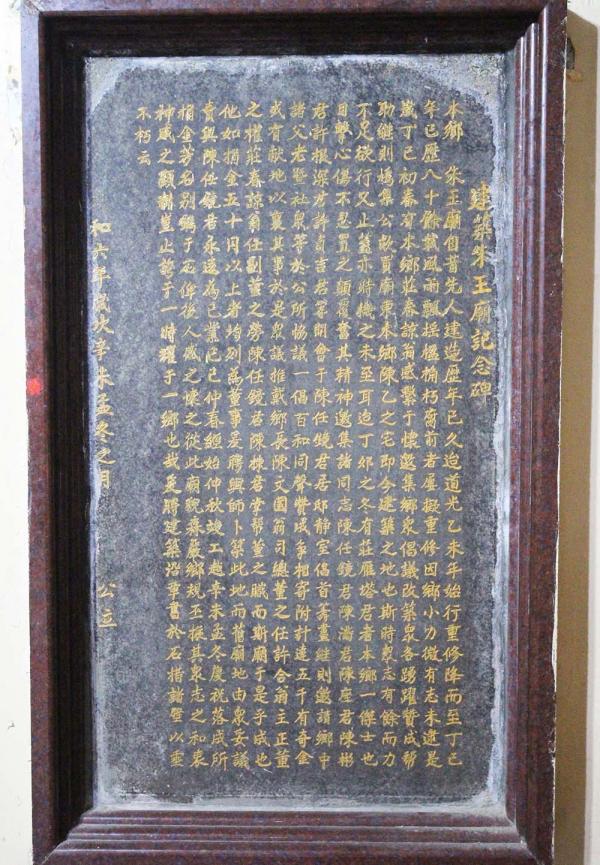 建築朱王廟記念碑
本鄉　朱王廟自昔先人建造歷年已久迨道光乙未年始行重修降而至丁巳
年已歷八十餘載風雨飄搖櫨桷朽腐前者屢擬重修因鄉小力微有志未逮是
歲丁巳初春有本鄉莊春諒翁感繫于懷邀集鄉眾倡議改築眾各踴躍贊成幫
助繼則鳩集公款買廟東本鄉陳乙之宅即今建築之地也斯時眾志有餘而力
不足欲行又止蓋亦時機之未至耳迨丁卯之冬有莊雁塔君者本鄉一傑士也
目擊心傷不忍置之顛覆奮其精神邀集諸同志陳任鏡君陳湍君陳座君陳彬
君許根深君許貞吉君等開會于陳任鏡君居邸靜室倡首籌畫繼則邀請鄉中
諸父老暨社眾等於公所協議一倡百和同聲贊成爭相寄附計達五千有奇金
或有獻地以襄其事於是眾議推戴鄉長陳文圓翁司總董之任許合翁主正董
之權莊春諒翁任副董之勞陳任鏡君陳棟君堂幫董之職而斯廟于是乎成也
他如捐金五十円以上者均列為董事爰聘興師卜築此地而舊廟地由眾妥議
賣與陳任鏡君永遠為己業己巳仲春經始仲秋竣工越辛未孟冬慶祝落成所
捐金芳名別鐫于石俾後人感之懷之從此廟貌森嚴鄉規丕振其眾志之和衷
神威之顯謝豈止誇于一時躍于一鄉也哉爰將建築沿革書於石楷諸壁以垂
不朽云
和六年歲次辛未孟冬之月　　公立